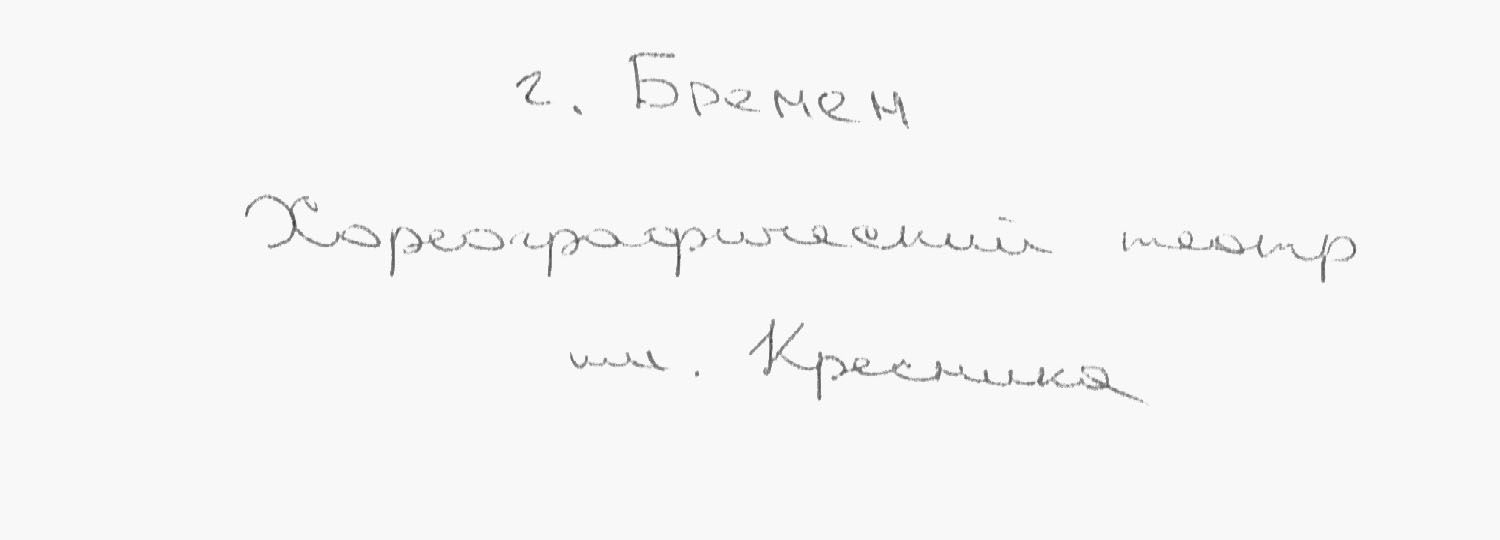 г. Бремен
Хореографический театр
им. Кресника